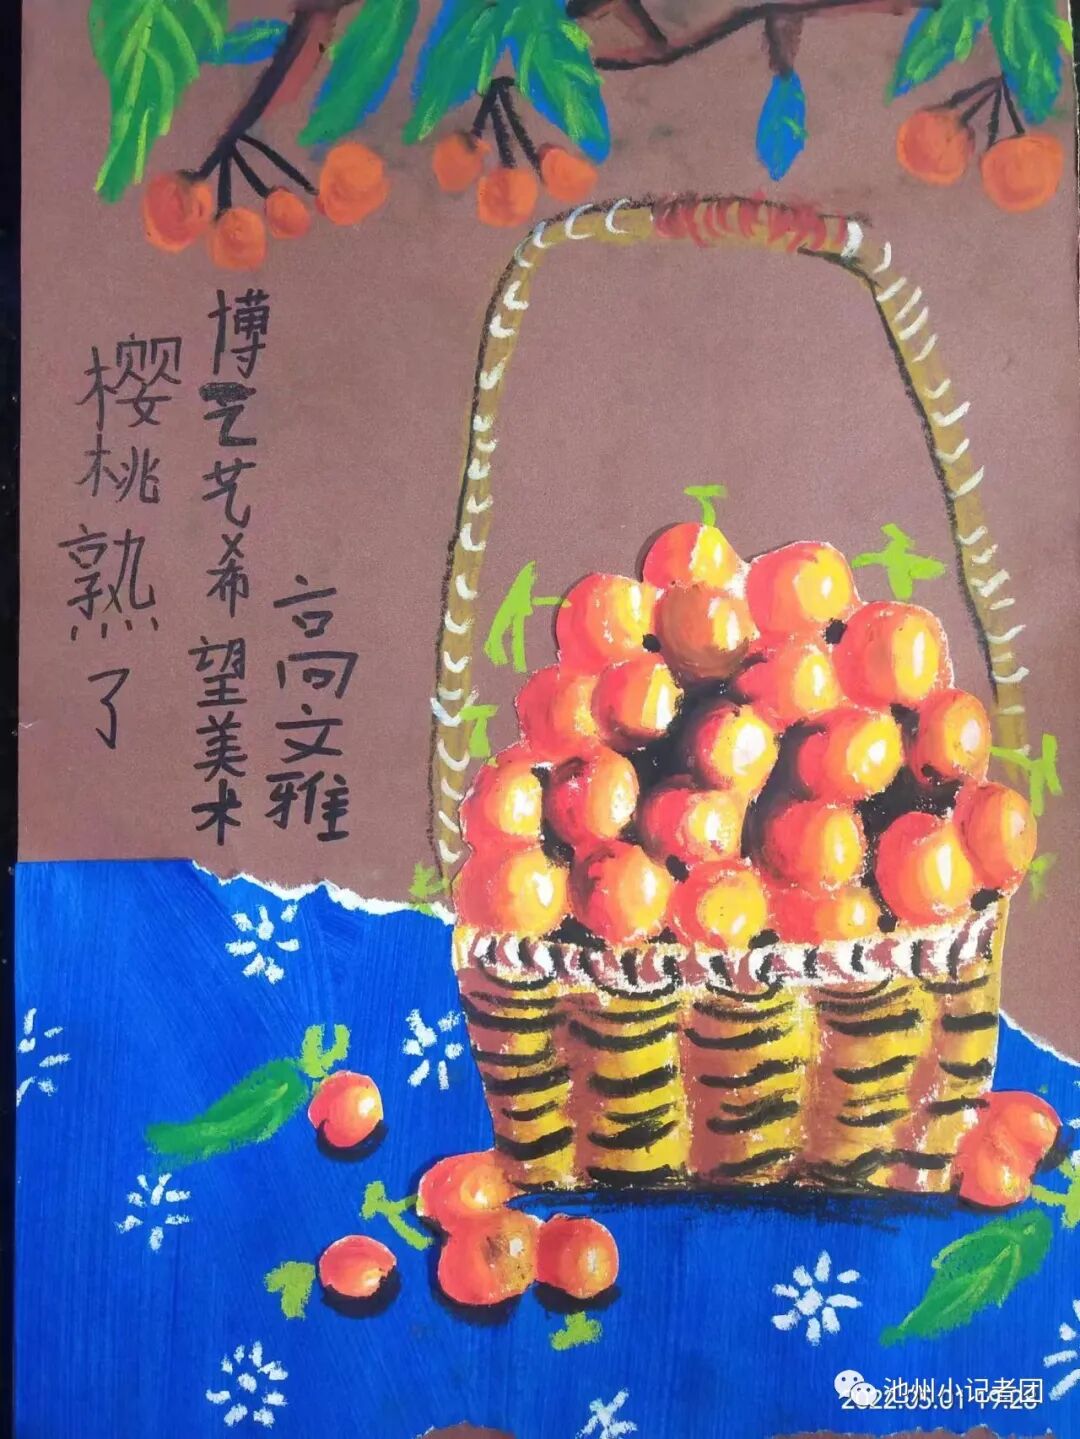 樱桃熟了
博艺希望美术
高文雅
池州小记者团
2022.05.01